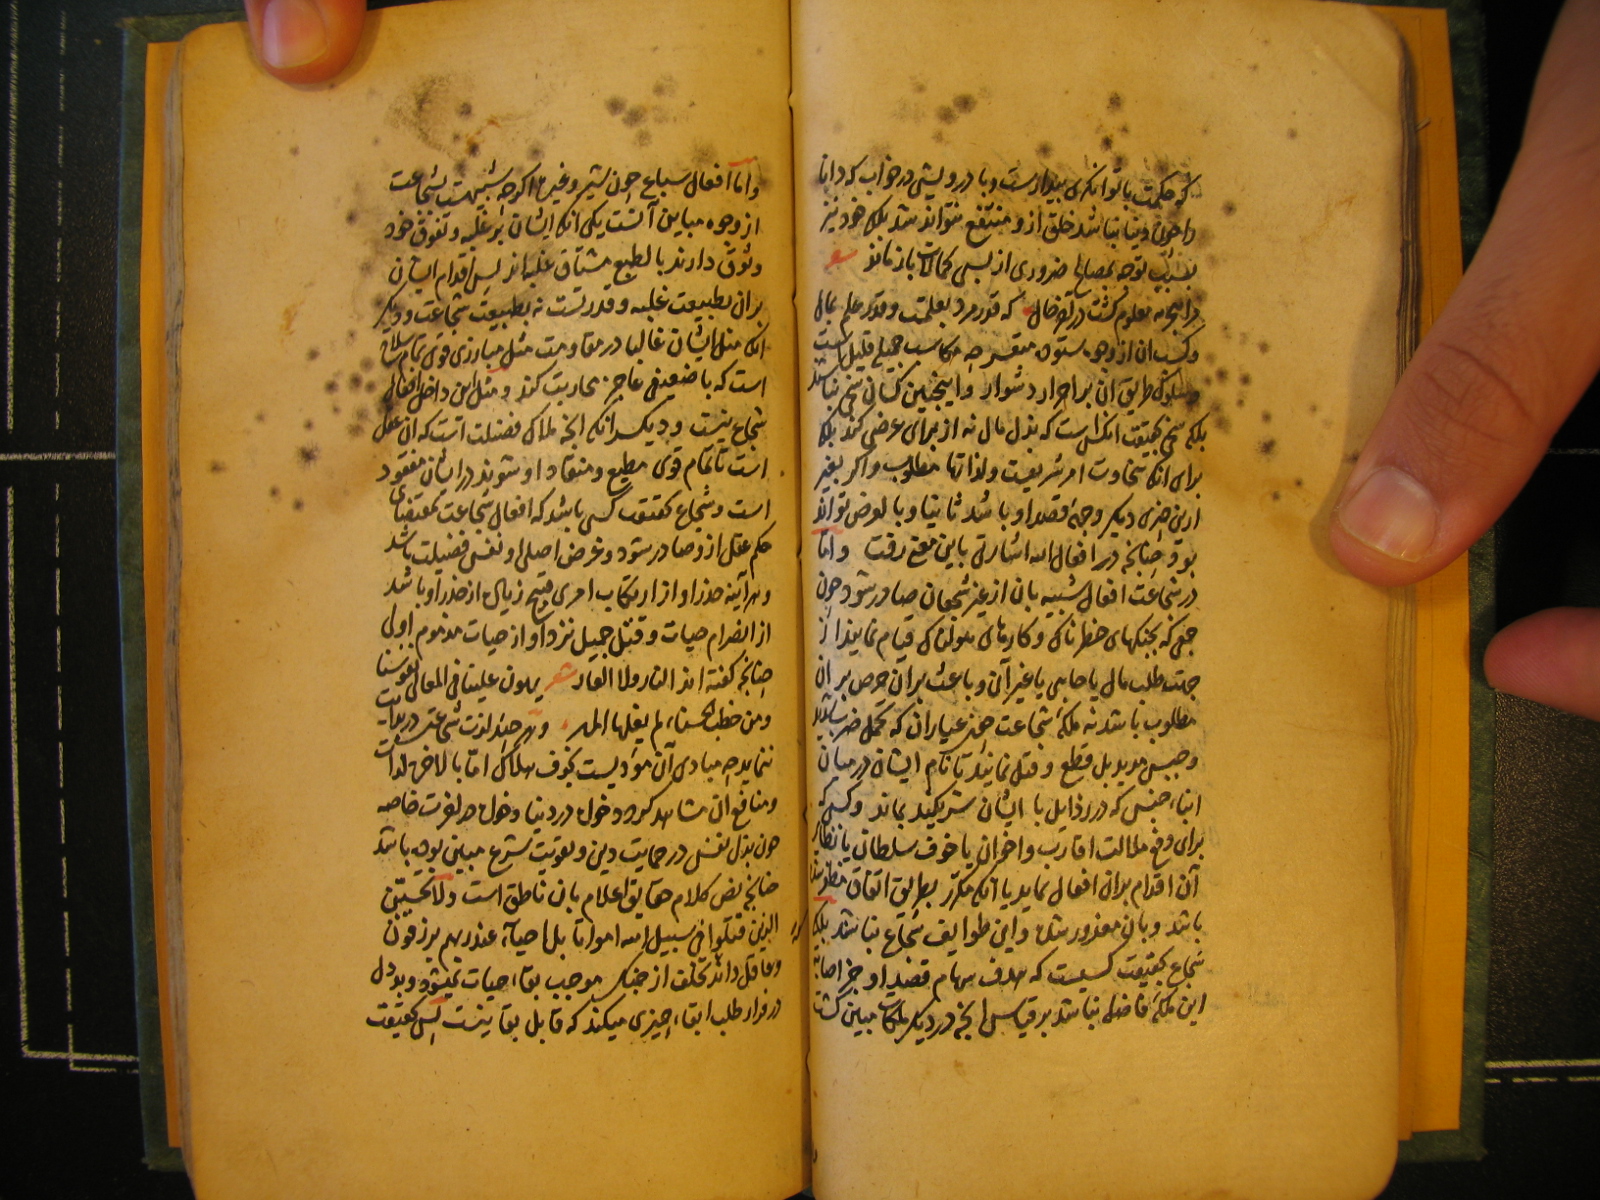 که حکمت با توانگری بیدارست و با درویشی در خواب که دانا
را چون دنیا نباشد خلق ازو منتفع نتواند شد بلکه خود نیز
بسبب توجه بمصالح ضروری از بسی کمالات باز ماند شعر
مرا بتجربه معلوم گشت در آخر حال که قدر مرد بعلمست و قدر علم بمال
و کسب آن از وجوه ستوده متعسر چه مکاسب جمیله قلیل است
و سلوک طریق آن بر احرار دشوار و اینچنین کسان سخی نباشند
بلکه سخی بحقیقت آنکس است که بذل مال نه از برای غرضی کند بلکه
برای آنکه سخاوت امر شریفست و لذاتها مطلوب و اگر بغیر
ازین چیزی دیگر وجهه قصد او باشد ثانیا و بالعرض تواند
بود چنانچه در افعال الله اشارتی باین معنی رفت و اما
در شجاعت افعال شبیه بان از غیر شجعان صادر شود چون
جمعی که بجنکهای خطرناک و کارهای هولناک قیام نمایند از
جهت طلب مال یا جاهی یا غیر آن و باعث بران حرص بر آن
مطلوب باشد نه ملکه شجاعت چون عیاران که تحمل ضرب شدید
و حبس مدید بل قطع و قتل نمایند تا نام ایشان در میان
ابناء جنس که در رذایل با ایشان شریکند بماند و کسی که
برای دفع ملالت اقارب و اخوان یا خوف سلطان یا نظایر
آن اقدام بران افعال نماید یا آنکه مکرر بطریق اتفاق مظفر شده
باشد و بان مغرور شده و این طوایف شجاع نباشد بلکه
شجاع بحقیقت کسیست که هدف سهام قصد او جز اصابه
این ملکه فاضله نباشد بر قیاس انچه در دیگر ملکات مبین گشت
و اما افعال سباع چون شیر و غیره اکرچه شبیهست بشجاعت
از وجوه مباین آنست یکی آنکه ایشان بر غلبه و تفوق خود
وثوق دارند بالطبع مشتاق غلبه‌اند پس اقدام ایشان
بران بطبیعت غلبه و قدرتست نه بطبیعت شجاعت و دیگر
آنکه مثل ایشان غالبا در مقاومت مثل مبارزی قوی تمام سلاح
است که با ضعیفی عاجز محاربت کند و مثل این داخل افعال
شجاع نیست و دیگر آنکه انچه ملاک فضیلت است که آن عقل
است تا تمام قوی مطیع و منقاد او شوند در ایشان مفقود
است و شجاع بحقیقت کسی باشد که افعال شجاعت بمقتضای
حکم عقل ازو صادر شود و غرض اصلی او نفس فضیلت باشد
و هر آینه حذر او از ارتکاب امری قبیح زیاده از حذر او باشد
از انصرام حیات و قتل جمیل نزد او از حیات مذموم اولی
چنانچه گفته‌اند النار ولا العار شعر یهون علینا فی المعالی نفوسنا
و من خطب الحسناء لم یغلها المهر و هر چند لذت شجاعت در بدایت
ننماید چه مبادی آن موذیست بخوف هلاک اما بالاخره لذات
و منافع آن مشاهد کردد خواه در دنیا و خواه در آخرت خاصه
چون بذل نفس در حمایت دین و تقویت شرع مبین بوده باشد
چنانچه نص کلام حقایق اعلام بان ناطق است و لا تحسبن
الذین قتلوا فی سبیل الله امواتا بل احیاء عند ربهم یرزقون
و عاقل داند که تخلف از جنک موجب بقاء حیات نمیشود و بددل
در فرار طلب ابقاء چیزی میکند که قابل بقا نیست پس بحقیقت